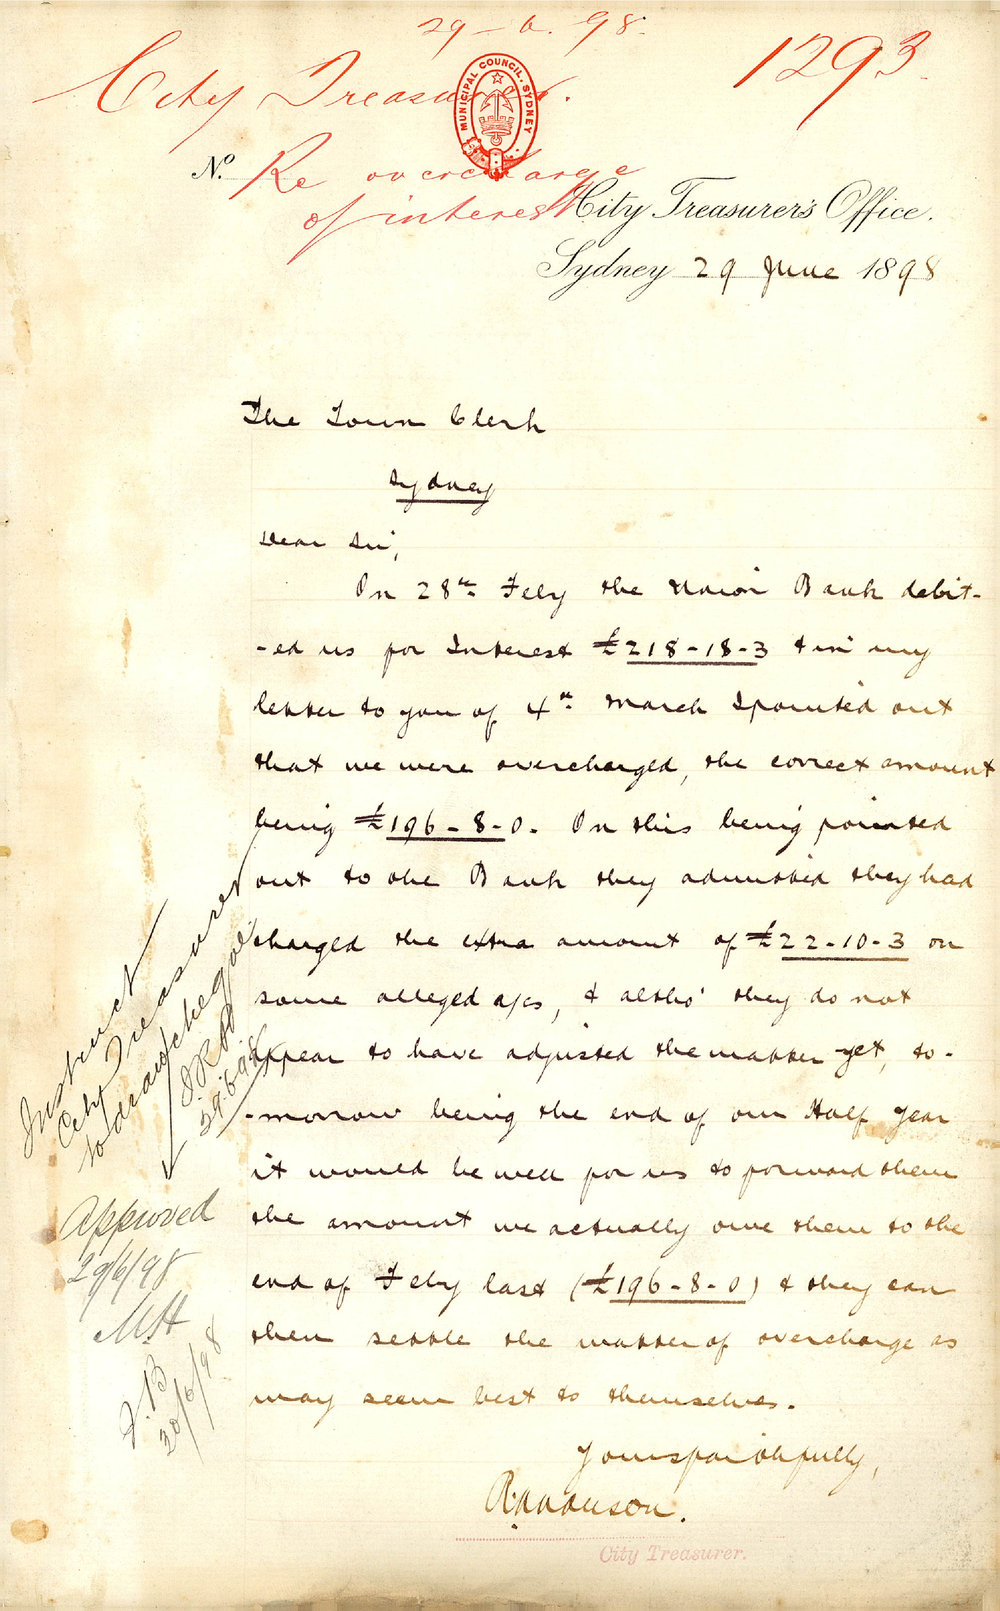 29-6.98.
1293
City Treasurer.
MUNICIPAL COUNCIL. SYDNEY
No. Re overcharge
of interest
City Treasurer's Office.
Sydney 29 June 1898
The Town Clerk
Sydney
Dear Sir,
On 28th Feby the Union Bank debit-
-ed us for Interest £218-18-3 & in my
letter to you of 4th March I pointed out
that we were overcharged, the correct amount
being £196-8-0. On this being pointed
out to the Bank they admitted they had
charged the extra amount of £22-10-3 on
some alleged a/cs, & altho' they do not
appear to have adjusted the matter yet, to-
-morrow being the end of our Half Year
it would be well for us to forward them
the amount we actually owe them to the
end of Feby last (£196-8-0) & they can
then settle the matter of overcharge as
may seem best to themselves.
Yours faithfully,
City Treasurer.
Instruct
City Treasurer
to draw cheque
29.6.98
Approved
29/6/98
MH
J.B
30/6/98